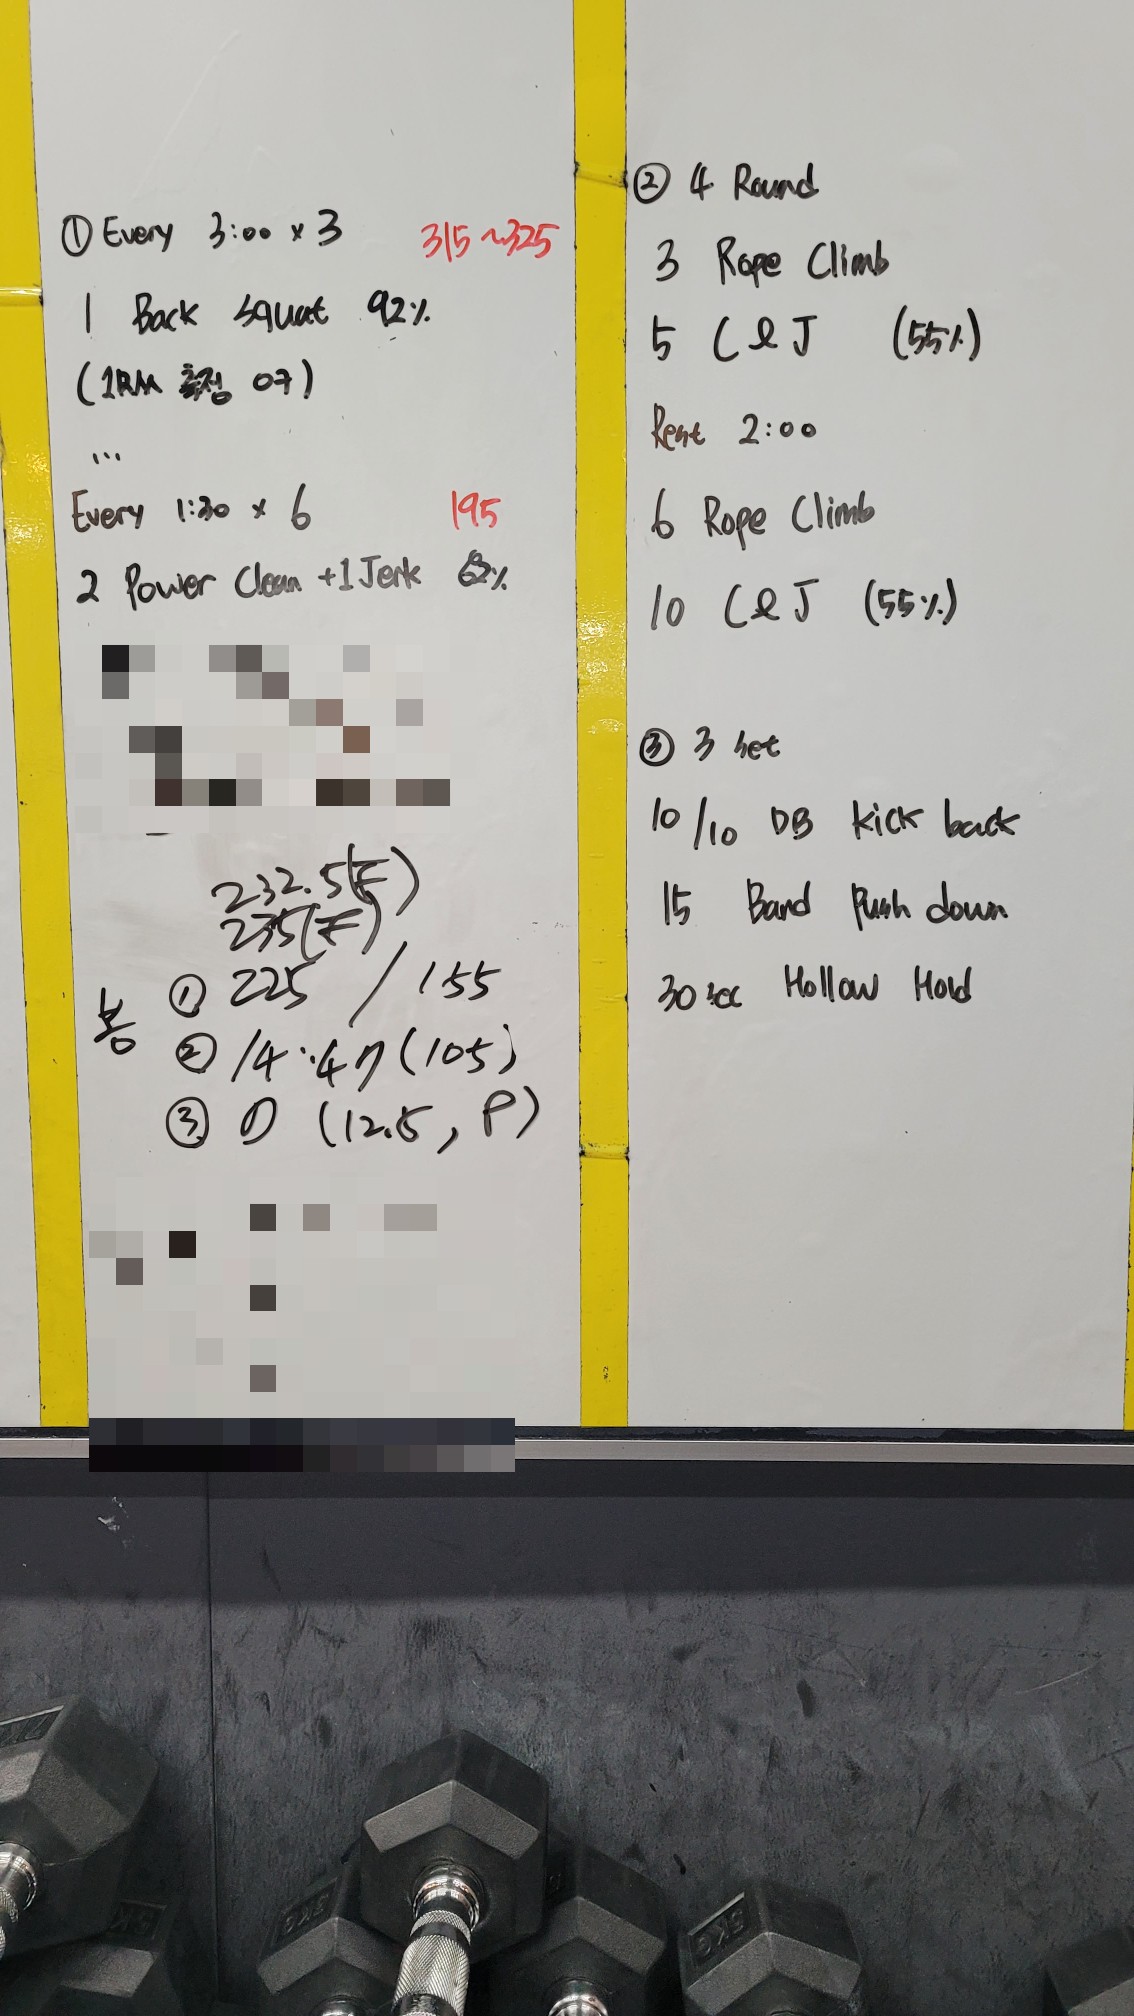 ① Every 3:00 x 3 315~325
1 Back squat 92%
(1RM 측정 07)
...
Every 1:30 x 6 195
2 Power Clean +1 Jerk 62%
232.5(F)
235(F)
봉 ① 225 / 155
② 14:47 (105)
③ (12.5, P)
② 4 Round
3 Rope Climb
5 C&J (55%)
Rest 2:00
6 Rope Climb
10 C&J (55%)
③ 3 set
10/10 DB kick back
15 Band Push down
30 sec Hollow Hold
5KG
5KG